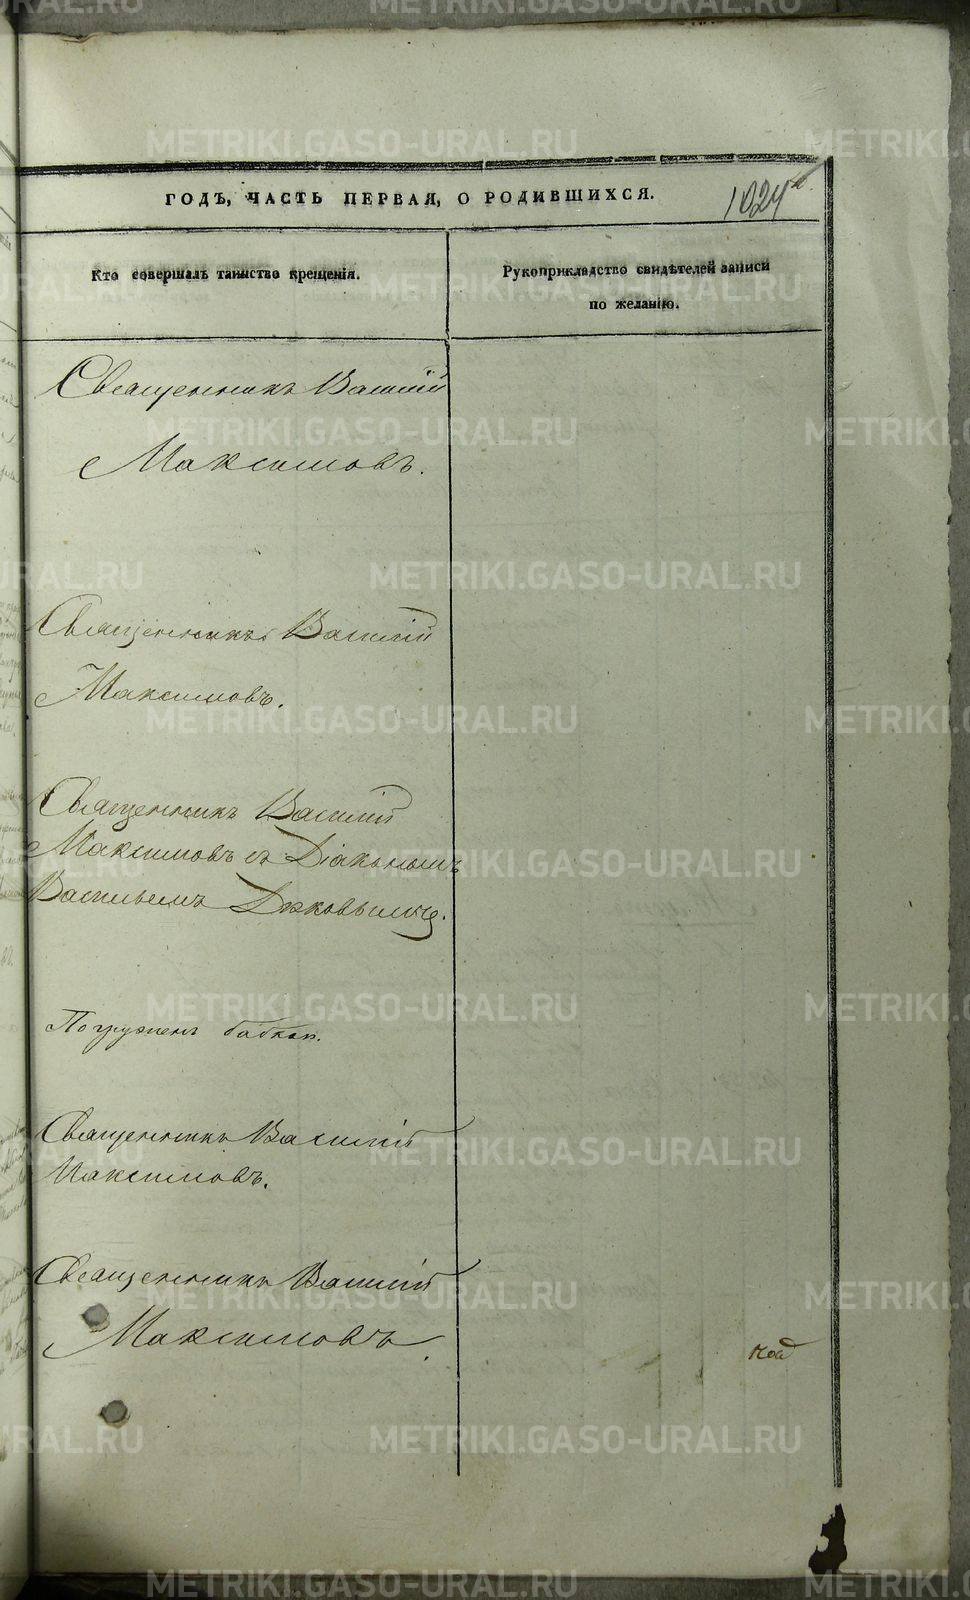 ГОДЪ, ЧАСТЬ ПЕРВАЯ, О РОДИВШИХСЯ.
1024
Кто совершалъ таинство крещенія.
Рукоприкладство свидѣтелей записи
по желанію.
Священникъ Василій
Максимовъ.
Священникъ Василій
Максимовъ.
Священникъ Василій
Максимовъ съ Діакономъ
Васильемъ
Погруженъ бабкой.
Священникъ Василій
Максимовъ.
Священникъ Василій
Максимовъ.
METRIKI.GASO-URAL.RU